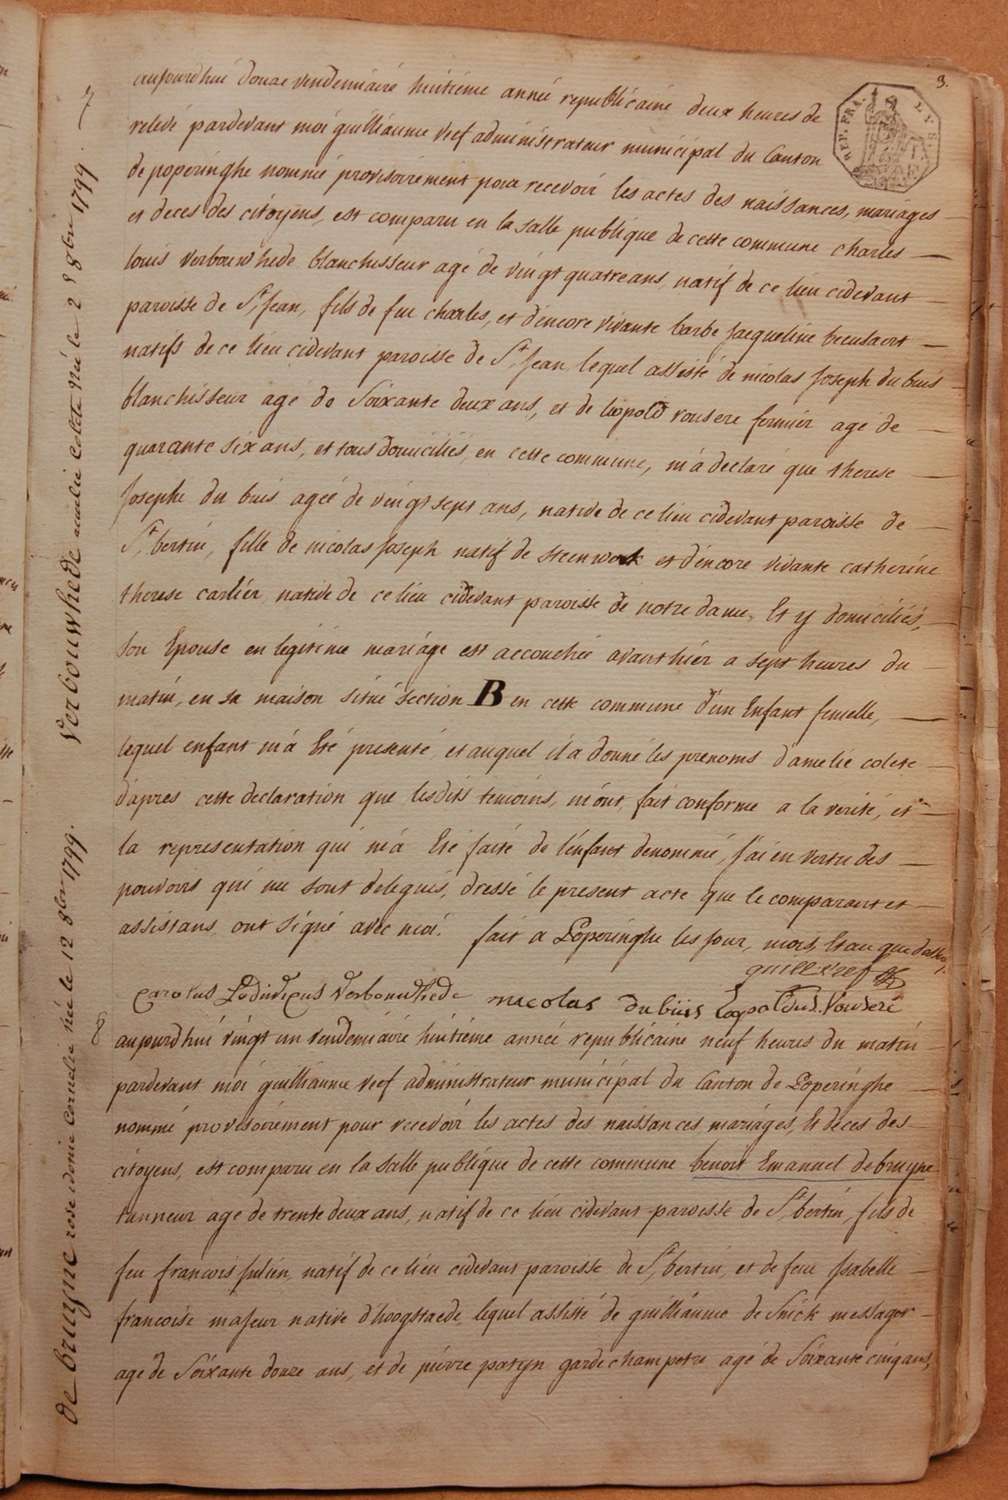 3.
REP. FRA.
LYS.
7
aujourdhui douze vendemiaire huitieme année republicaine deux heures de
relevé pardevant moi guilliaume veef administrateur municipal du Canton
de poperinghe nommé provisoirement pour recevoir les actes des naissances, mariages
et deces des citoyens, est comparu en la salle publique de cette commune charles
louis verbouwhede blanchisseur agé de vingt quatre ans natif de ce lieu cidevant
paroisse de St jean, fils de feu charles, et d'encore vivante barbe jacqueline
natifs de ce lieu cidevant paroisse de St jean lequel assisté de nicolas joseph du buis
blanchisseur agé de Soixante deux ans, et de leopold fermier agé de
quarante six ans, et tous domiciliés en cette commune, m'a declaré que therese
josephe du buis ageé de vingt sept ans, native de ce lieu cidevant paroisse de
St bertin, fille de nicolas joseph natif de steenwerk et d'encore vivante catherine
therese carlier native de ce lieu cidevant paroisse de notre dame, et y domiciliés,
son Epouse en legitime mariage est accouchée avanthier a sept heures du
matin, en sa maison situé section B en cette commune d'un Enfant femelle,
lequel enfant m'a Eté presenté et auquel il a donné les prenoms d'amelie colete
d'apres cette declaration que lesdits temoins, m'ont fait conforme a la verité, et
la representation qui m'a Eté faite de l'enfant denommé, j'ai en vertu des
pouvoirs qui me sont delegués, dressé le present acte que le comparant et
assistans ont signé avec moi. fait a Poperinghe les jour, mois, et an que dessus
guill veef
Carolus Ludovicus Verbouwhede nicolas du buis Leopoldus
8
aujourdhui vingt un vendemiaire huitieme année republicaine neuf heures du matin
pardevant moi guilliaume veef administrateur municipal du Canton de Poperinghe
nommé provisoirement pour recevoir les actes des naissances mariages, et deces des
citoyens, est comparu en la salle publique de cette commune benoit Emanuel debruyne
tanneur agé de trente deux ans, natif de ce lieu cidevant paroisse de St bertin, fils de
feu francois julien, natif de ce lieu cidevant paroisse de St bertin, et de feue isabelle
francoise majeur native d'hoogstaede, lequel assisté de guilliaume de Snick messager
agé de Soixante douze ans, et de pierre paryn garde champetre agé de Soixante cinq ans,
Verbouwhede amelie colete née le 2 8bre 1799.
de bruyne rose idonie Cornelie née le 12 8bre 1799.